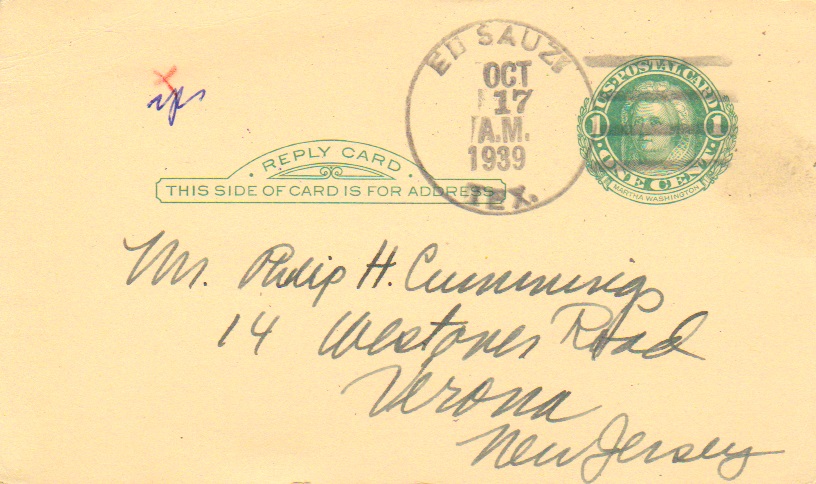 ED SAUZ
OCT
17
A.M.
1939
TEX.
U.S. POSTAL CARD
1 1
ONE CENT
MARTHA WASHINGTON
REPLY CARD
THIS SIDE OF CARD IS FOR ADDRESS
Mr. Philip H. Cummings
14 Westover Road
Verona
New Jersey